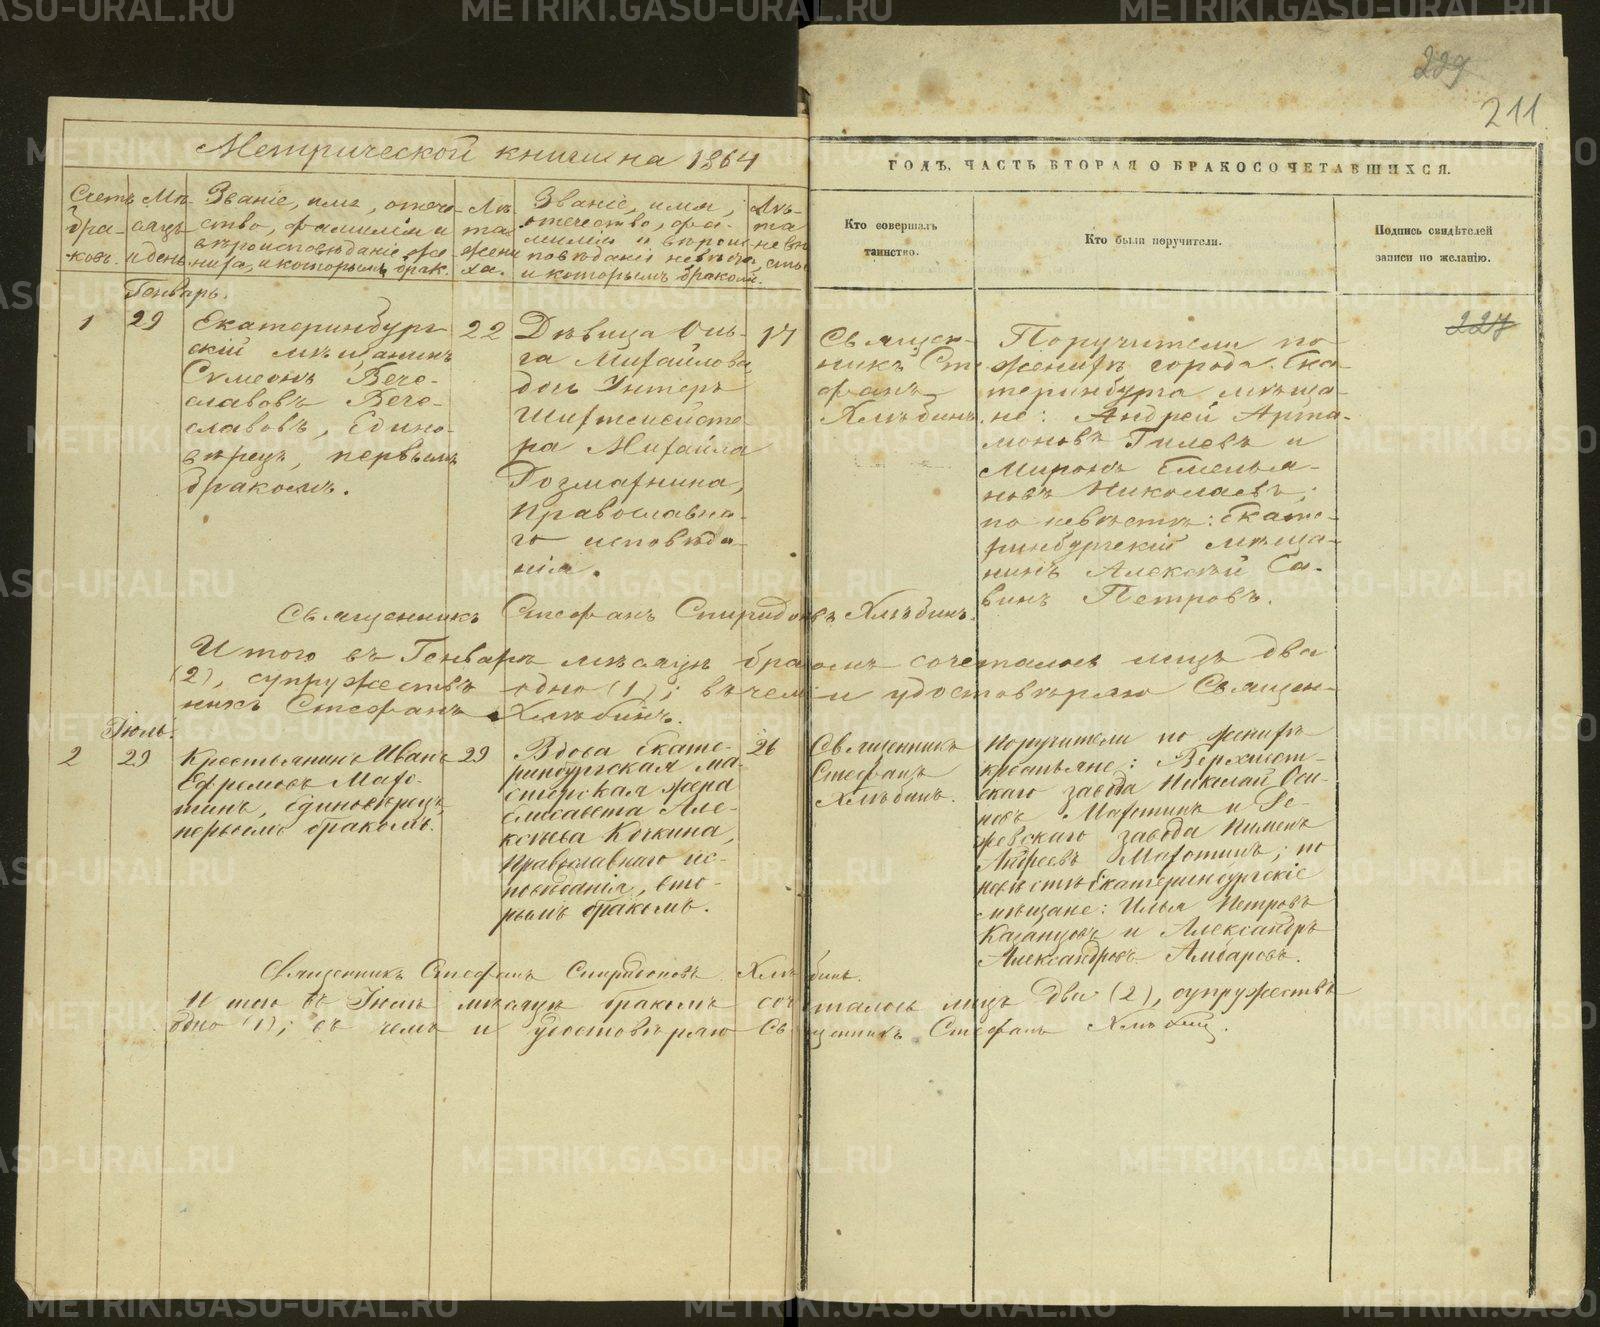 229
211
Метрической книги на 1864
ГОДЪ, ЧАСТЬ ВТОРАЯ О БРАКОСОЧЕТАВШИХСЯ.
Счетъ бра-ковъ.
Мѣ-сяцъ и день
Званіе, имя, отече-
ство, фамилія и
вѣроисповѣданіе же-
ниха, и которымъ брак.
Лѣ-
та
жени
ха.
Званіе, имя,
отечество, фа-
милія и вѣроис
повѣданіе невѣсты,
и которымъ бракомъ.
Лѣ-
та
невѣ
сты
Кто совершалъ
таинство.
Кто были поручители.
Подпись свидѣтелей
записи по желанію.
227
Генварь.
1
29
Екатеринбург-
скій мѣщанинъ
Сѵмеонъ Вече-
славовъ Вече-
славовъ, Едино-
вѣрецъ, первымъ
бракомъ.
22
Дѣвица Оль-
га Михайлова,
дочь Унтеръ
Шихтмейсте-
ра Михайла
Розмахнина,
Православна-
го исповѣда-
нія.
17
Священ-
никъ Сте
фанъ
Хлѣбинъ.
Поручители по
женихѣ города Ека-
теринбурга мѣща-
не: Андрей Арта-
моновъ Гилевъ и
Миронъ Емелья-
новъ Николаевъ;
по невѣстѣ: Екате-
ринбургскій мѣща-
нинъ Алексѣй Са-
винъ Петровъ.
Священникъ Стефанъ Спиридоновъ Хлѣбинъ.
Итого въ Генварѣ мѣсяцѣ бракомъ сочеталось лицъ два
(2), супружествъ одно (1); въ чемъ и удостовѣряю Священ-
никъ Стефанъ Хлѣбинъ.
Іюль.
2
29
Крестьянинъ Иванъ
Ефремовъ Махо-
тинъ, Единовѣрецъ,
первымъ бракомъ.
29
Вдова Екате-
ринбургская ма-
стерская жена
Елисавета Але-
ксѣева Кочкина,
Православнаго ис-
повѣданія, вто-
рымъ бракомъ.
26
Священникъ
Стефанъ
Хлѣбинъ.
Поручители по женихѣ
крестьяне: Верхисет-
скаго завода Николай Оси-
повъ Махотинъ и Ре-
жевскаго завода Пименъ
Андреевъ Махотинъ; по
невѣстѣ Екатеринбургскіе
мѣщане: Илья Петровъ
Казанцовъ и Александръ
Александровъ Амбаровъ.
Священникъ Стефанъ Спиридоновъ Хлѣбинъ.
Итого въ Іюлѣ мѣсяцѣ бракомъ сочеталось лицъ два (2), супружествъ
одно (1); въ чемъ и удостовѣряю Священникъ Стефанъ Хлѣбинъ.
METRIKI.GASO-URAL.RU